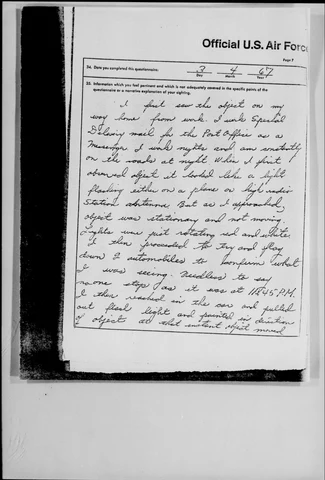 Official U.S. Air Forc
Page 7
34. Date you completed this questionnaire:
3 4 67
Day Month Year
35. Information which you feel pertinent and which is not adequately covered in the specific points of the
questionnaire or a narrative explanation of your sighting.
I first saw the object on my
way home from work. I work Special
Delivery mail for the Post Office as a
Messenger I work nights and am constantly
on the roads at night When I first
observed object it looked like a light
flashing either on a plane or high radio
Station antenna. But as I approached,
object was stationary and not moving.
Lights were just rotating red and white.
I then proceeded to try and flag
down 2 automobiles to confirm what
I was seeing. Needless to say
no one stops as it was at 11:45 P.M.
I then reached in the car and pulled
out flash light and pointed in direction
of object at that instant object moved